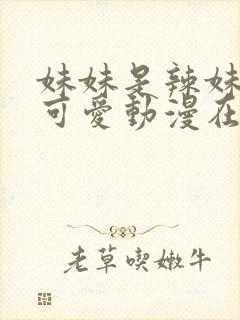 妹妹是辣妹
可愛動漫在
老草喫嫩牛